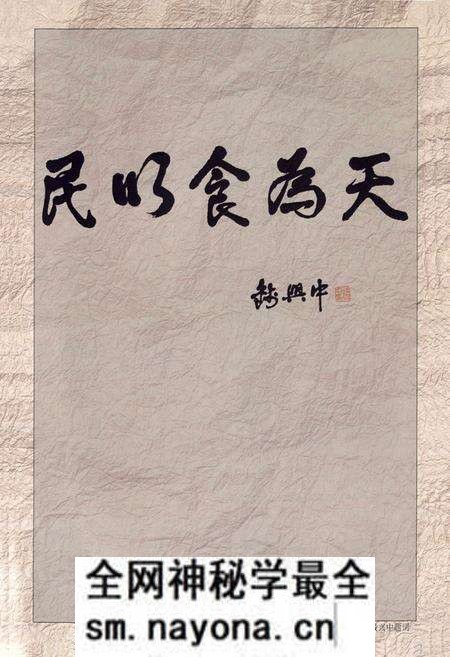 民以食為天
錢興中
兴中题词
全网神秘学最全
sm.nayona.cn